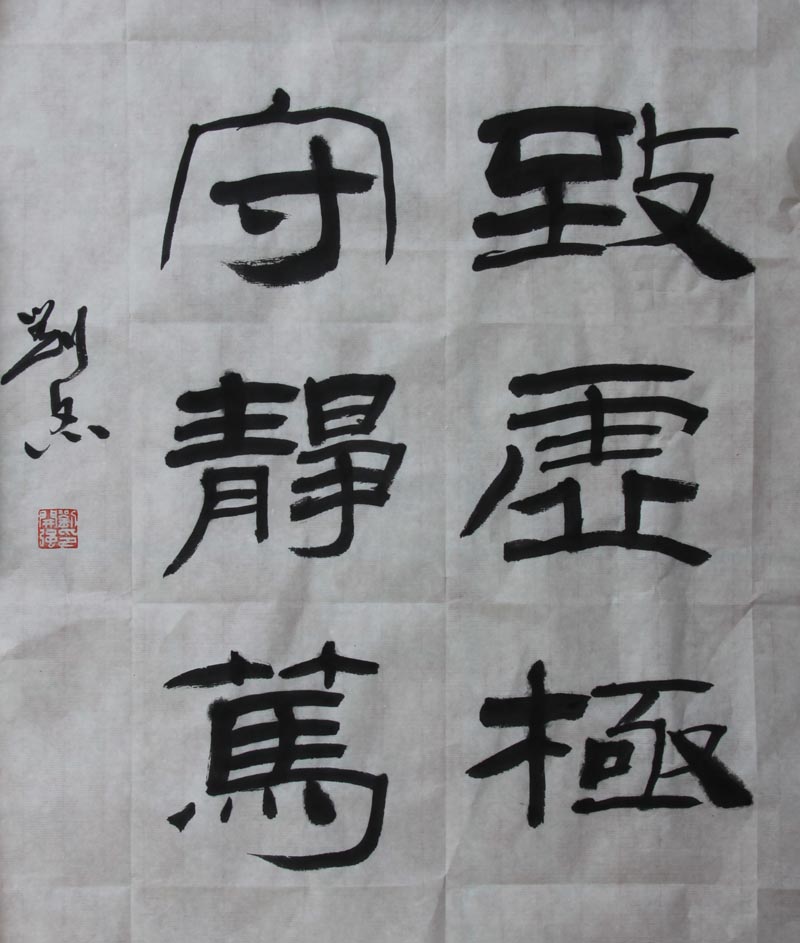 致虛極
守靜篤
劉兵